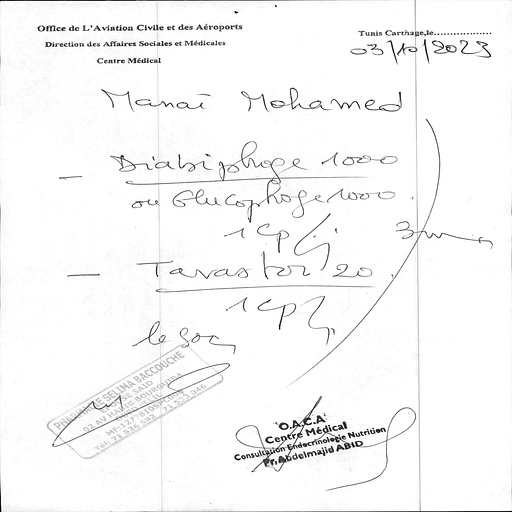 Office de L'Aviation Civile et des Aéroports
Direction des Affaires Sociales et Médicales
Centre Médical
Tunis Carthage,le..................
03/10/2023
Manaï Mohamed
- Diabiphage 1000
ou Glucophage 1000.
1 cp/j
3 mois
- Tavastor 20.
1 cp/j
le soir
PHARMACIE SELIMA BACCOUCHE
92 AV HABIB BOURGUIBA
O.A.C.A
Centre Médical
Consultation Endocrinologie Nutrition
Pr. Abdelmajid ABID